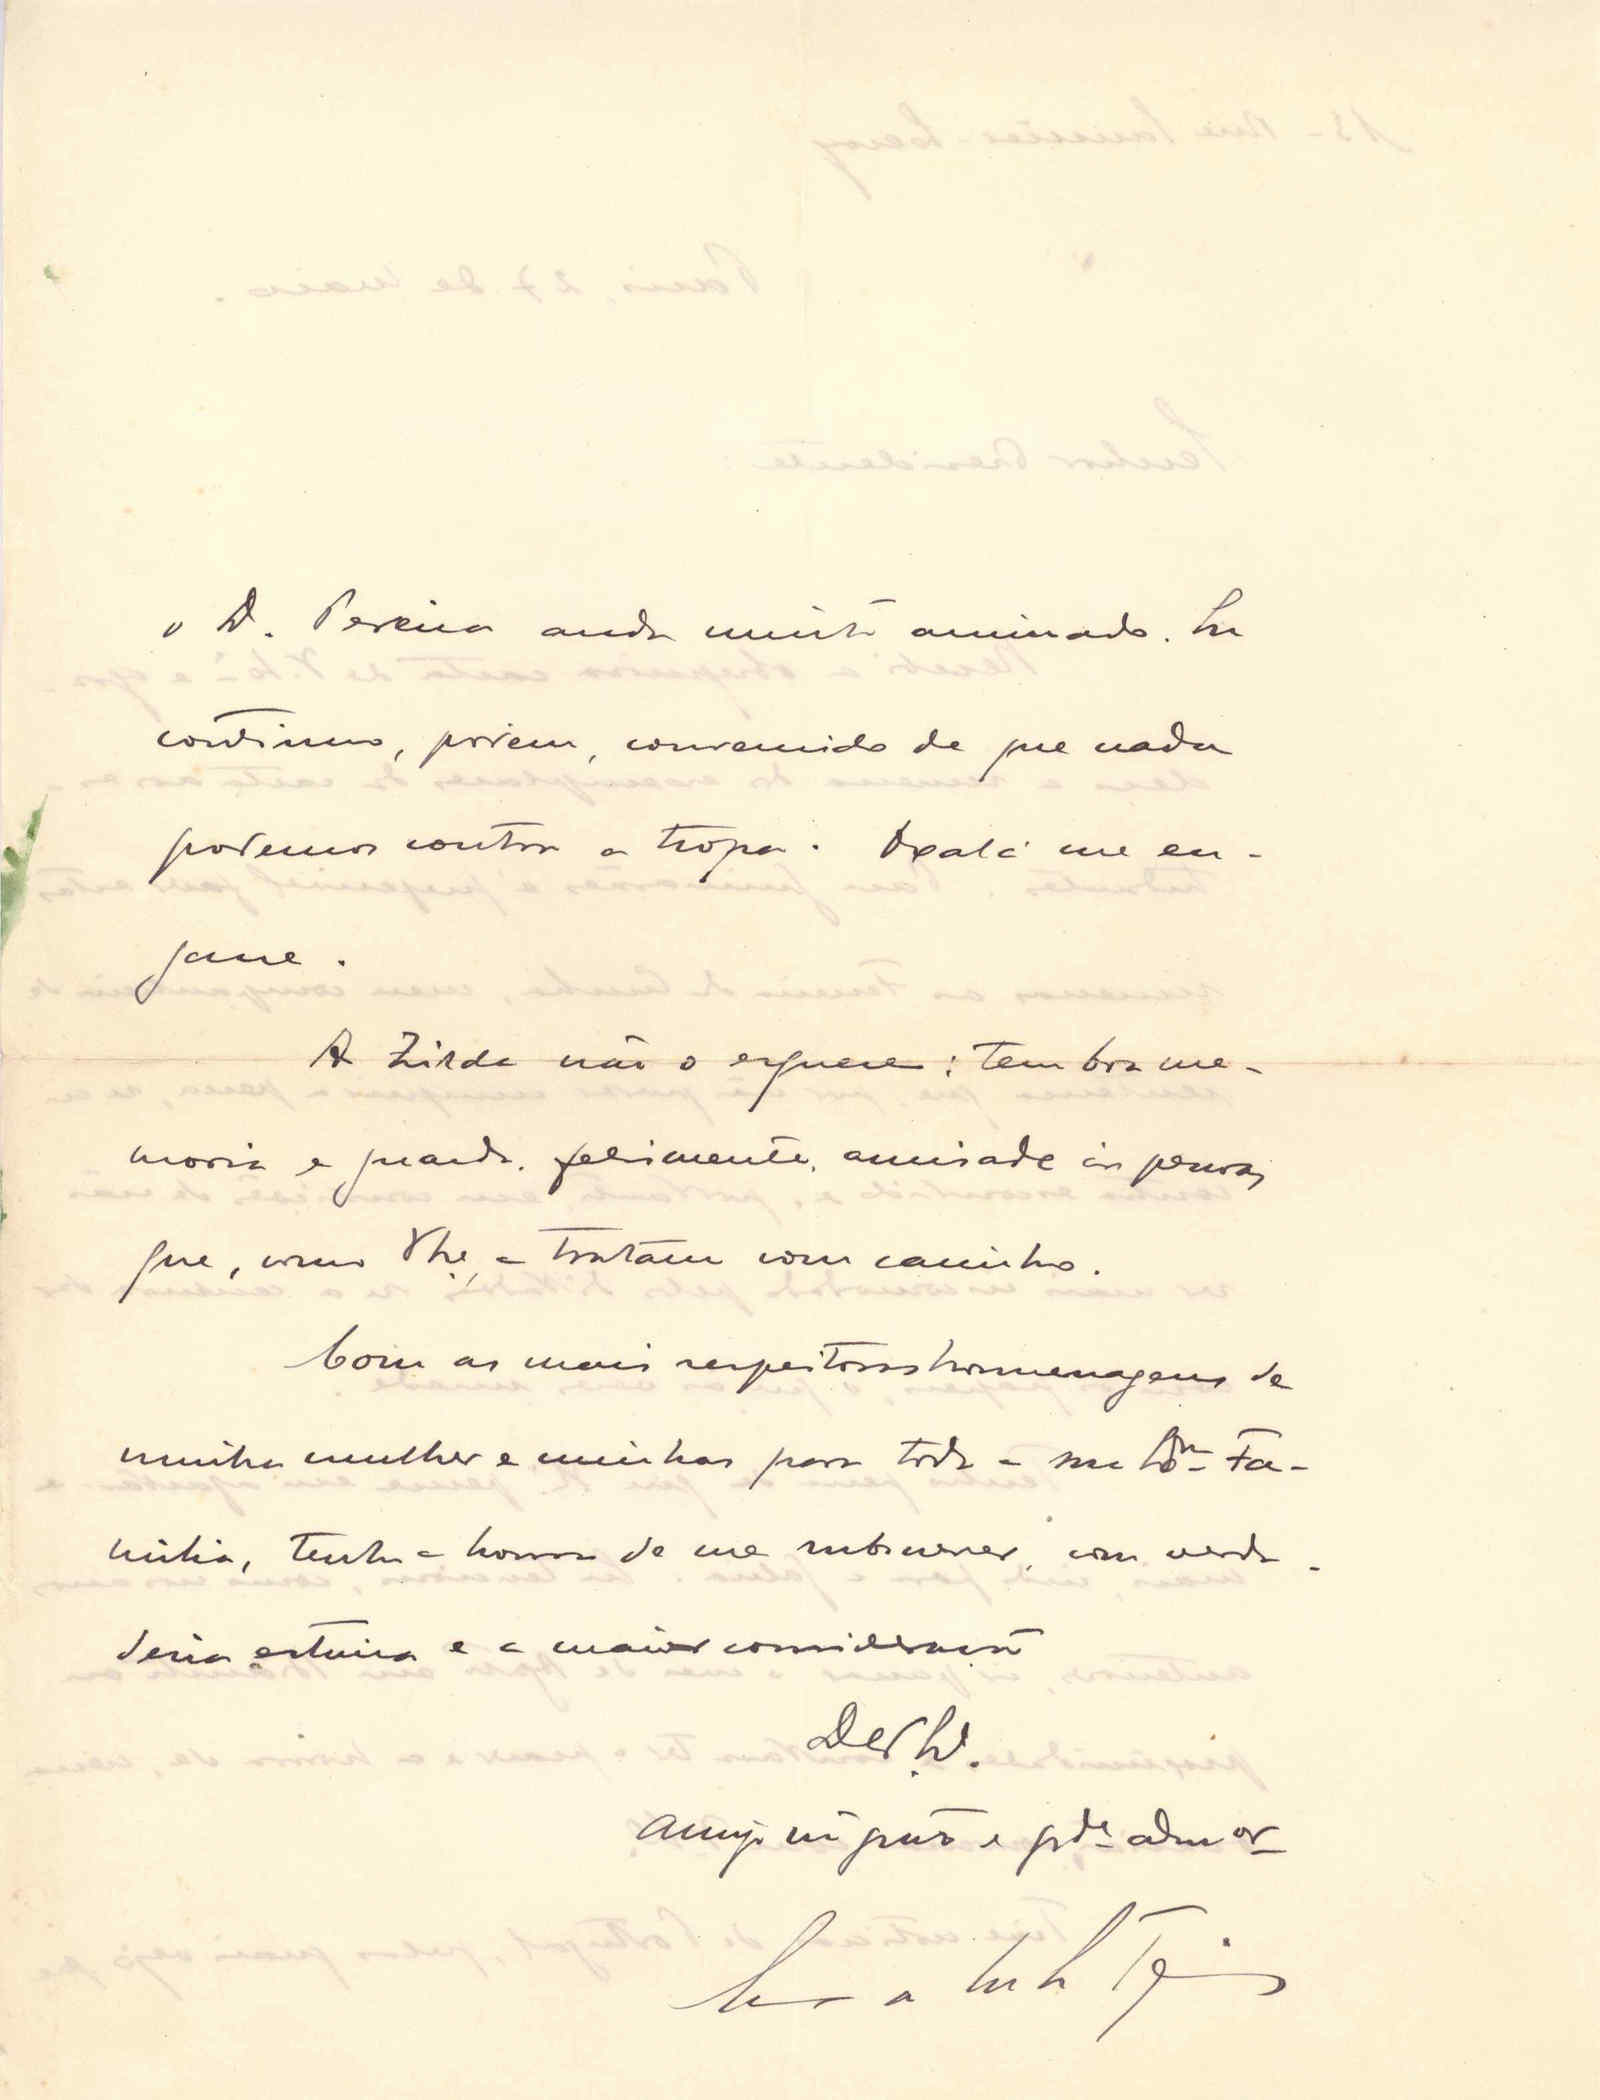 o D. Pereira anda muito animado. Eu
continuo, porém, convencido de que nada
podemos contra a tropa. Oxalá me en-
gane.
A Zilda não o esquece; tem boa me-
moria e guarda, felizmente, amisade ás pessoas
que, como V. Ex.ª, a tratam com carinho.
Com as mais respeitosas homenagens de
minha mulher e minhas para toda a sua Ex.ma Fa-
milia, tenho a honra de me subscrever, com verda-
deira estima e a maior consideração
De V. Ex.
Amigo mto grato e gde admor